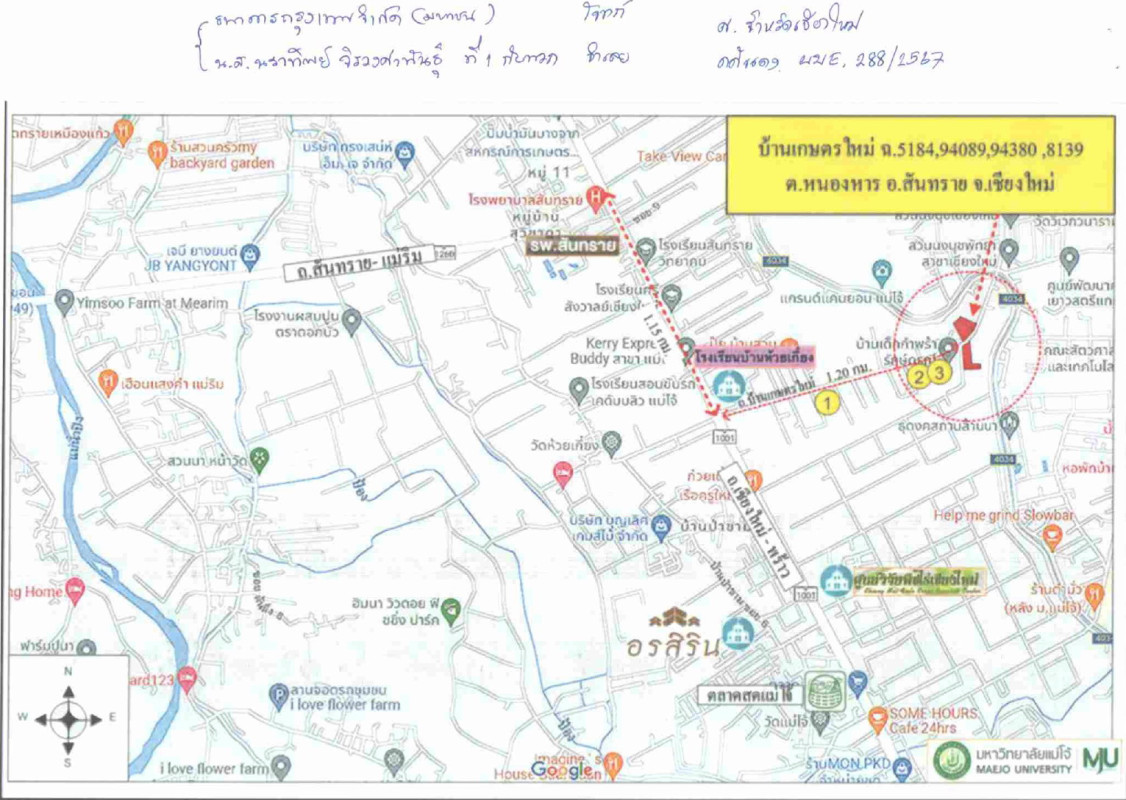 ธนาคารกรุงเทพจำกัด (มหาชน) โจทก์
ศ. จังหวัดเชียงใหม่
น.ส. นราทิพย์ ที่ 1 กับพวก จำเลย
คดีแดง ผบE. 288/2567
บ้านเกษตรใหม่ ฉ.5184,94089,94380 ,8139
ต.หนองหาร อ.สันทราย จ.เชียงใหม่
ร้านสวนครัวmy
backyard garden
บริษัท ทรงเสน่ห์
เอ็ม.เจ จำกัด
ปั๊มน้ำมันบางจาก
สหกรณ์การเกษตร...
หมู่ 11
Take View
โรงพยาบาลสันทราย
หมู่บ้าน
ซอย 9
รพ.สันทราย
โรงเรียนสันทราย
วิทยาคม
เจบี ยางยนต์
JB YANGYONT
ถ.สันทราย-แม่ริม
1260
4034
สวนนงนุชพัทยา
สาขาเชียงใหม่
แกรนด์แคนยอน แม่โจ้
ศูนย์พัฒนา
4034
Yimsoo Farm at Mearim
โรงงานผสมปูน
ตราดอกบัว
1.15 กม.
Kerry
Buddy สาขา
โรงเรียนบ้านห้วยเกี๋ยง
บ้านเด็กกำพร้า
คณะสัตวศา
และเทคโนโล
เฮือนแสงคำ แม่ริม
โรงเรียนสอนขับรถ
เคดับบลิว แม่โจ้
ถ.บ้านเกษตรใหม่ 1.20 กม.
1
2
3
แม่น้ำปิง
วัดห้วยเกี๋ยง
1001
ธุดงคสถานล้านนา
4034
สวนนา หน้าวัด
ถ.เชียงใหม่ - พร้าว
บริษัท บุญเลิศ
เคมส์ไม้ จำกัด
Help me grind Slowbar
1001
ศูนย์วิจัยพืชไร่เชียงใหม่
ng Home
ฮิมนา วิวดอย ฟิ
ชชิ่ง ปาร์ค
(หลัง ม.แม่โจ้)
อรสิริน
N
W
E
S
ard123
ลานจอดรถชุมชน
i love flower farm
ตลาดสดแม่โจ้
วัดแม่โจ้
SOME HOURS.
Cafe 24hrs
i love flower farm
Google
ร้านMON.PKD
มหาวิทยาลัยแม่โจ้
MAEJO UNIVERSITY
MJU